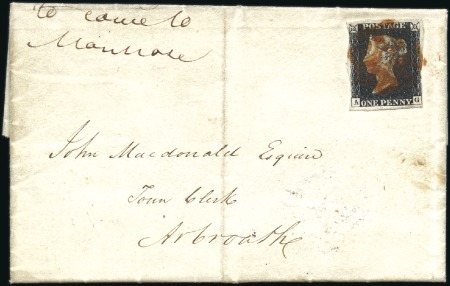 to come to
Montrose
POSTAGE
A ONE PENNY G
John Macdonald Esquire
Town Clerk
Arbroath